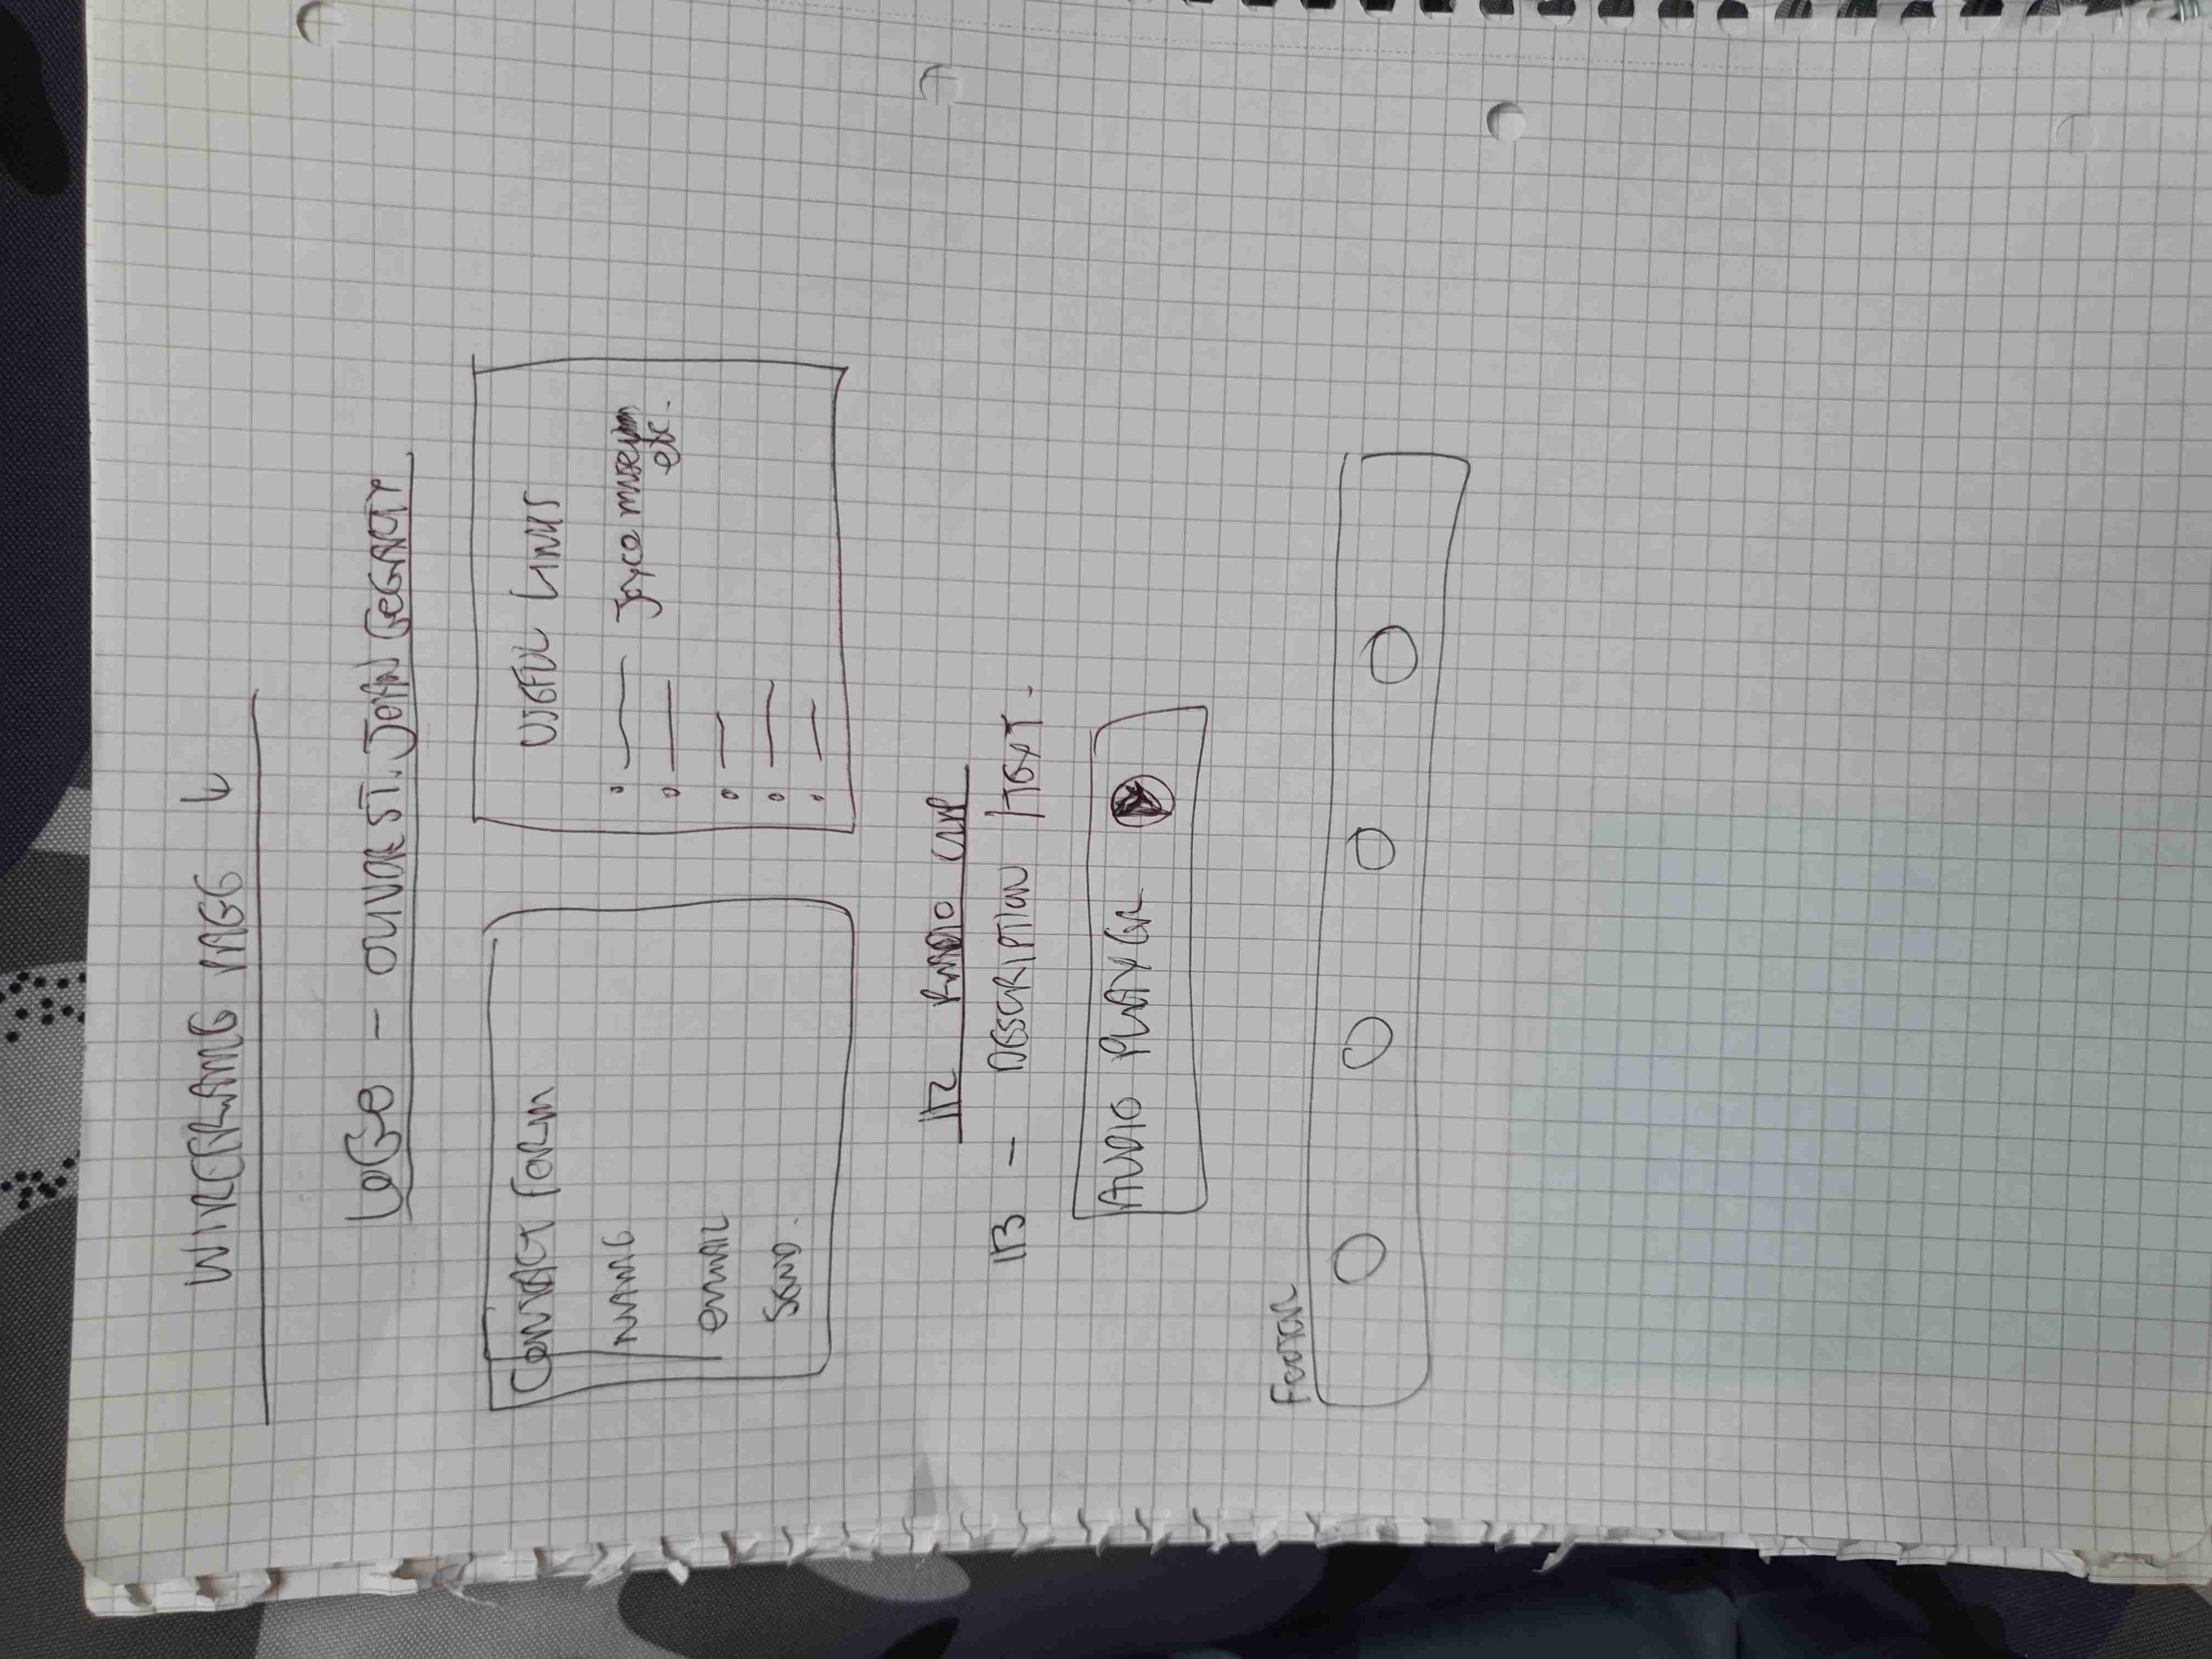 WIREFRAME PAGE 4
LOGO - OLIVER ST. JOHN GOGARTY
CONTACT FORM
NAME
EMAIL
SEND.
USEFUL LINKS
Joyce museum
etc.
H2 RADIO CLIP
H3 - DESCRIPTION / TEXT -
AUDIO PLAYER
FOOTER